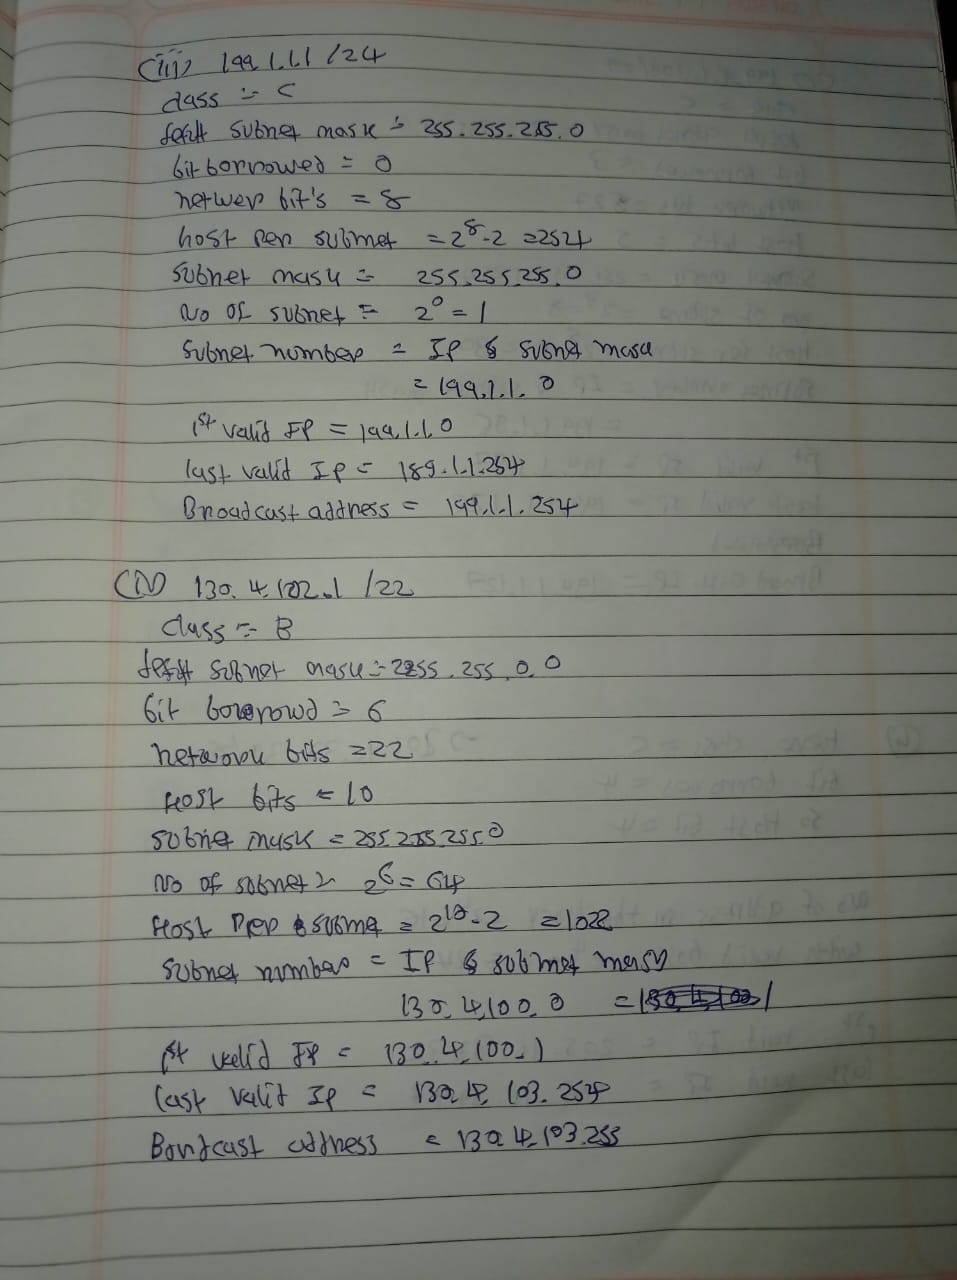 (iii) 199.1.1.1 /24
class = C
defult subnet mask = 255.255.255.0
bit borrowed = 0
networ bit's = 8
host per subnet = 2^8-2 = 254
subnet mask = 255.255.255.0
No of subnet = 2^0 = 1
Subnet number = IP & subnet mask
= 199.1.1.0
1st valid IP = 199.1.1.0
last valid Ip = 189.1.1.254
Broadcast address = 199.1.1.254
(IV) 130.4.102.1 /22
Class = B
defult subnet mask = 2255.255.0.0
bit borrowd = 6
network bits = 22
Host bits = 10
subnet mask = 255.255.255.0
No of subnet = 2^6 = 64
Host Per subnet = 2^10-2 = 1022
subnet number = IP & subnet mask
130.4.100.0 =
1st valid IP = 130.4.100.1
last valid Ip = 130.4.103.254
address = 130.4.103.255